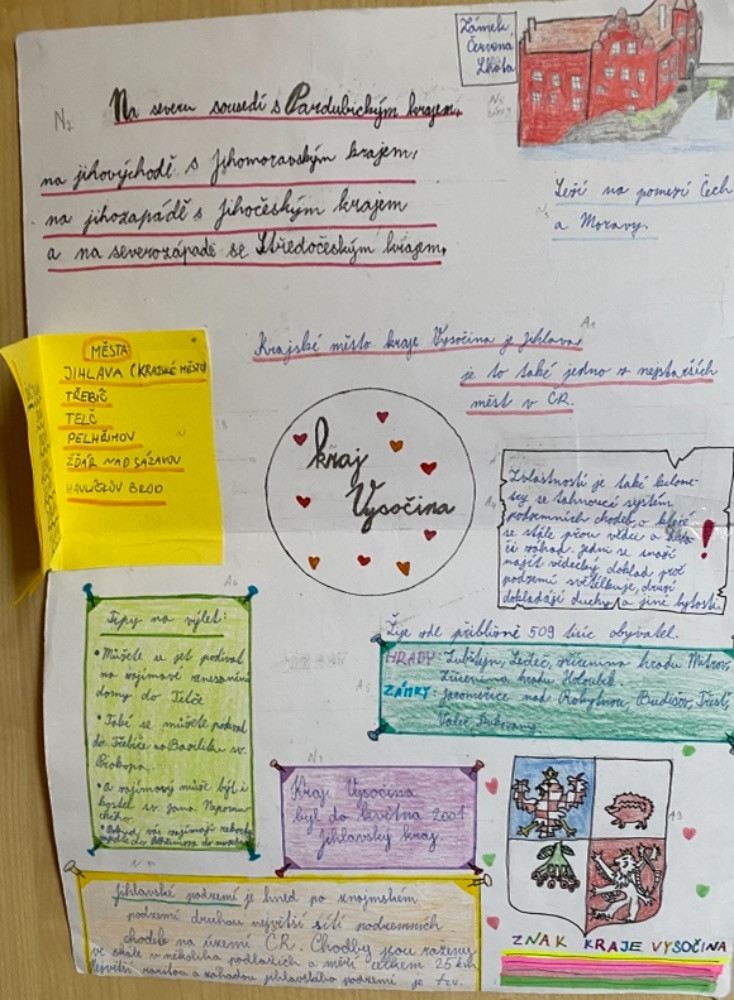 Zámek
Červená
Lhota
Na severu sousedí s Pardubickým krajem,
na jihovýchodě s Jihomoravským krajem,
na jihozápádě s Jihočeským krajem
a na severozápadě se Středočeským krajem.
Leží na pomezí Čech
a Moravy.
Krajské město kraje Vysočina je Jihlava,
je to také jedno z nejstarších
měst v ČR.
MĚSTA
JIHLAVA (KRAJSKÉ MĚSTO)
TŘEBÍČ
TELČ
PELHŘIMOV
ŽĎÁR NAD SÁZAVOU
HAVLÍČKŮV BROD
kraj
Vysočina
Zvláštností je také kilome-
try se táhnoucí systém
podzemních chodeb, o které
se stále přou vědce a
či záhad. Jedni se snaží
najít vědecký doklad proč
podzemí světélkuje, druzí
dokládájí duchy a jiné bytosti.
!
Žije zde přibližně 509 tisíc obyvatel.
HRADY: Lubštejn, Ledeč, zřícenina hradu Mitrov,
zřícenina hradu Holoubek.
ZÁMKY: Jaroměřice nad Rokytnou, Budišov, Třešť,
Valeč,
Tipy na výlet:
• Můžete se jet podívat
na zajímavé renesanční
domy do Telče
• Také se můžete podívat
do Třebíče na Baziliku sv.
Prokopa.
• a zajímavý může být i
kostel sv. Jana Nepomu-
ckého.
• Pokud vás zajímají rekordy
Kraj Vysočina
byl do května 2001
Jihlavský kraj
Jihlavské podzemí je hned po znojmském
podzemí druhou největší sítí podzemních
chodeb na území ČR. Chodby jsou raženy
ve skále v několika podlažích a měří celkem 25 km
Největší raritou a záhadou jihlavského podzemí je tzv.
ZNAK KRAJE VYSOČINA